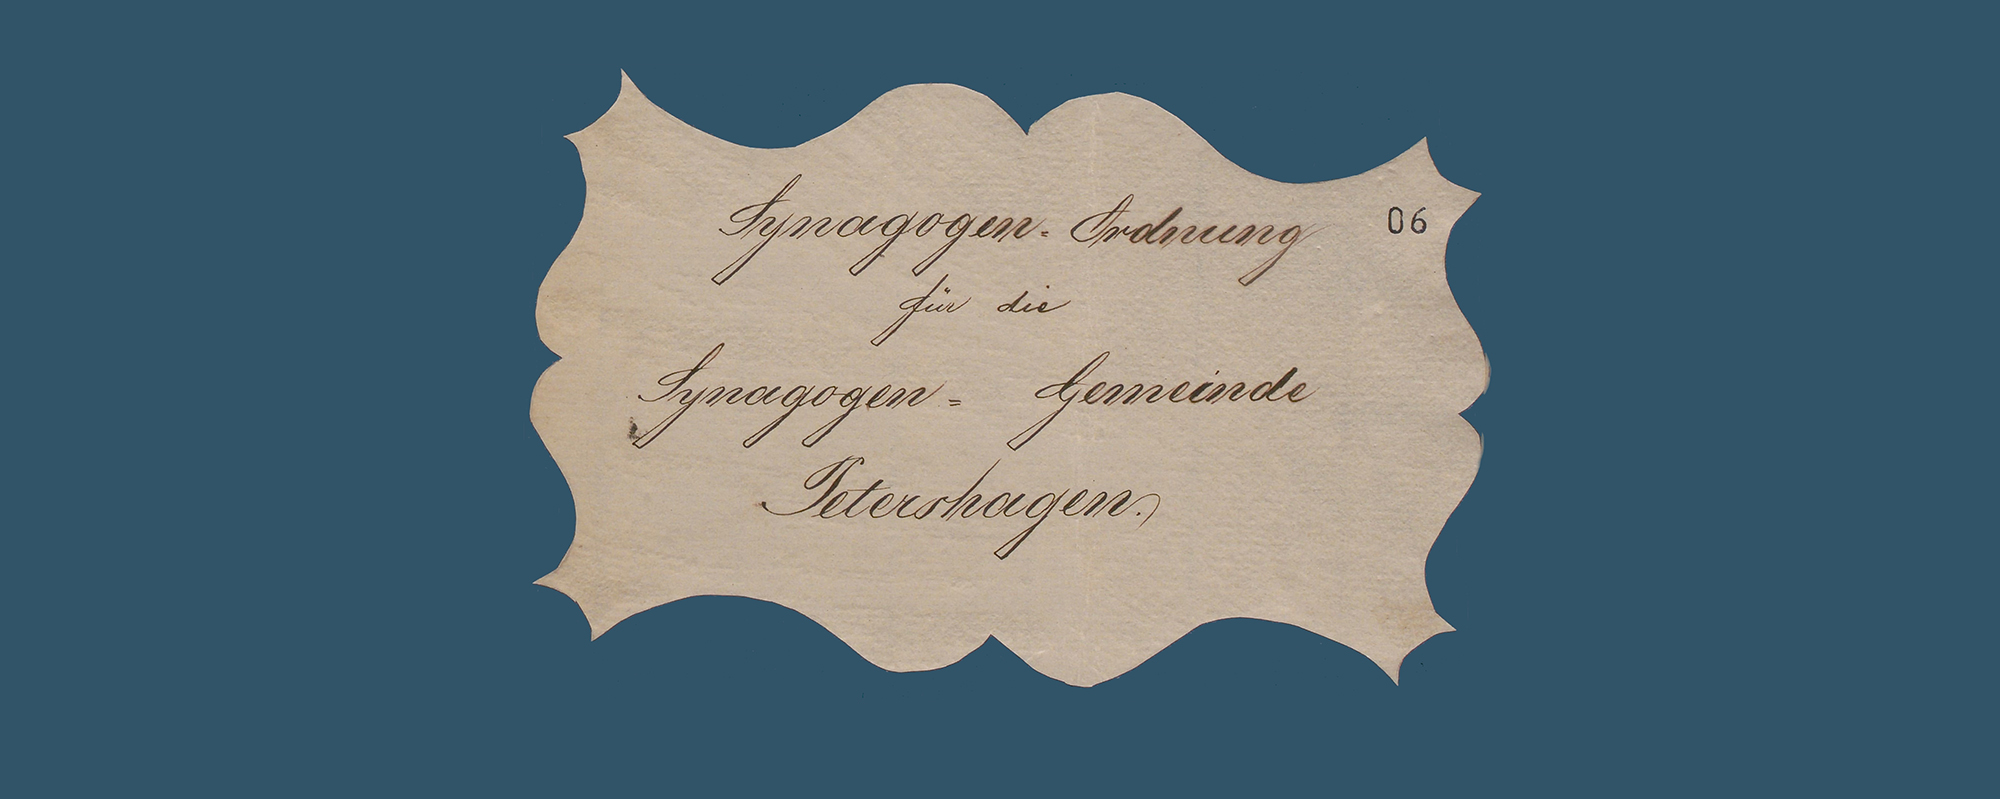 Synagogen-Ordnung
06
für die
Synagogen= Gemeinde
Petershagen.